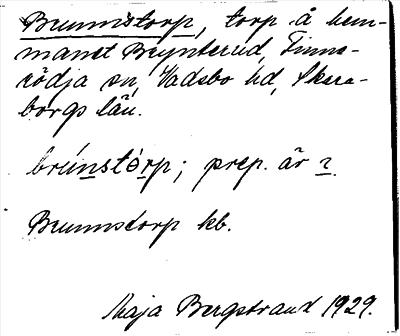 Brunnstorp, torp å hem-
manet Brynterud, Finne-
rödja sn, Vadsbo hd, Skara-
borgs län.
brúnstòrp; prep. är 2.
Brunnstorp kb.
Maja Bergstrand 1929.